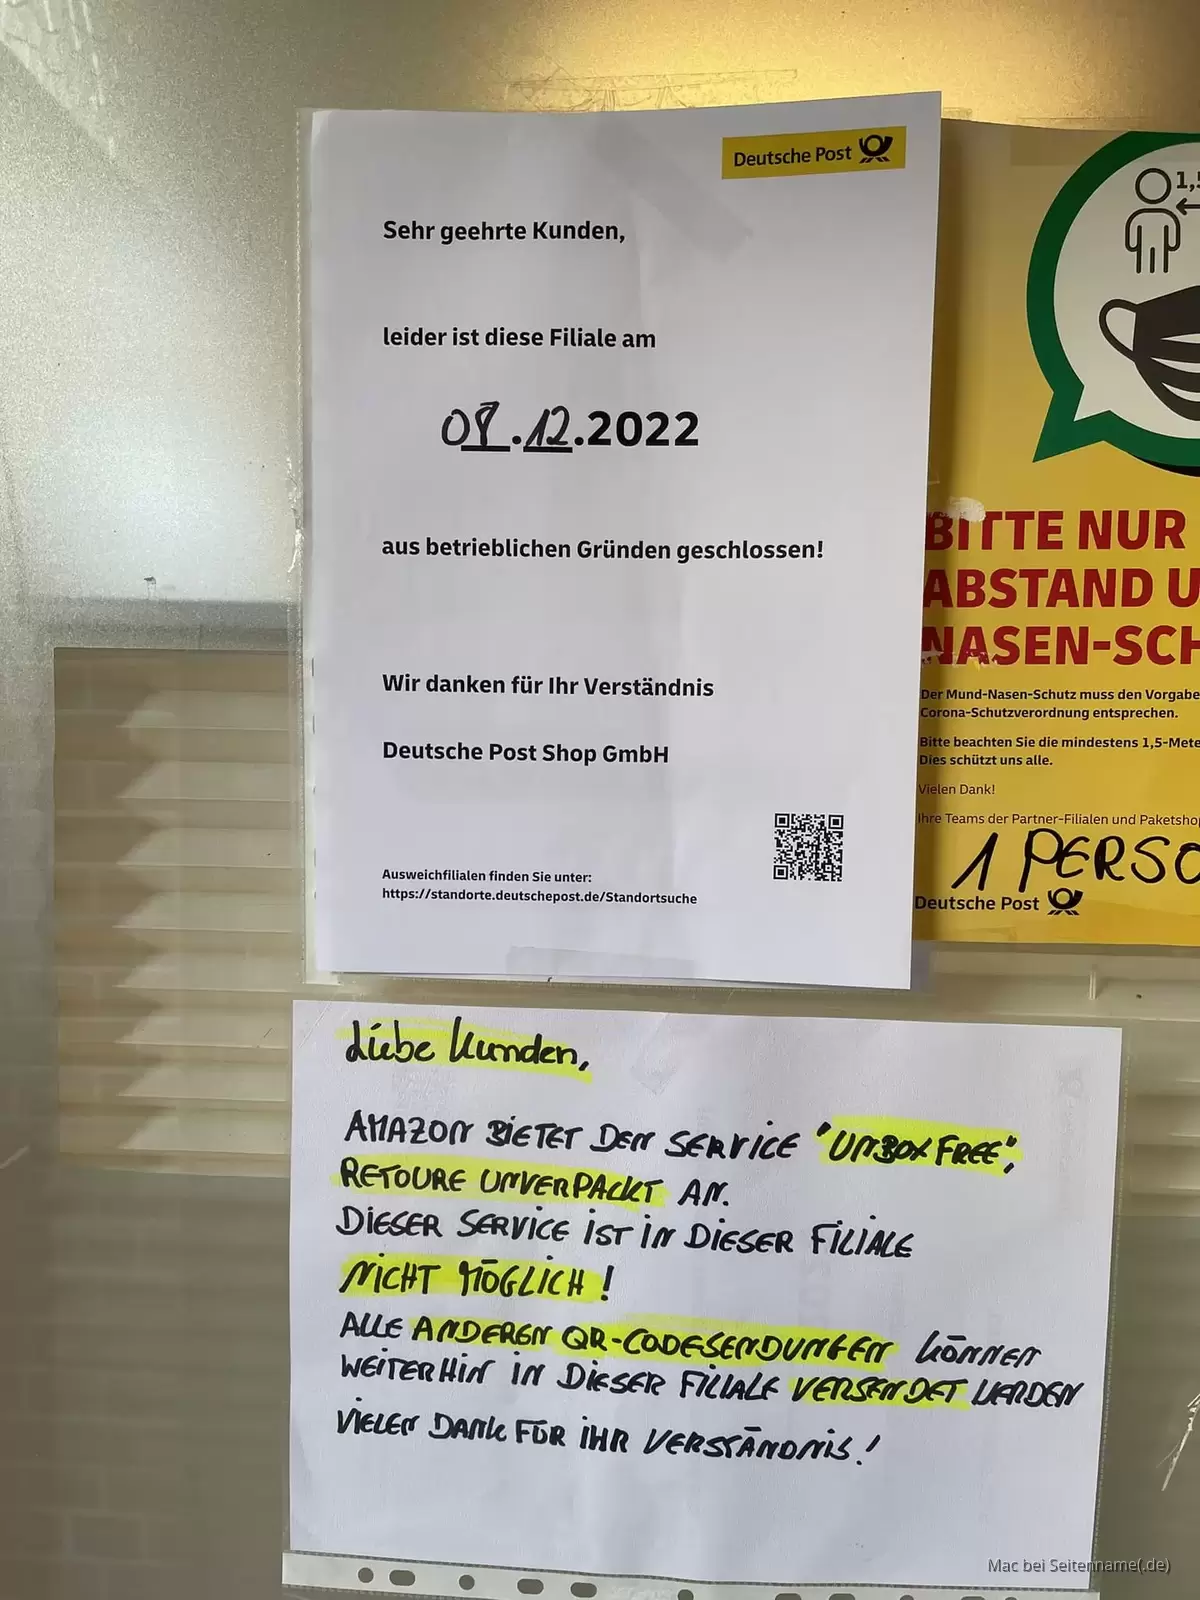 Deutsche Post
Sehr geehrte Kunden,
leider ist diese Filiale am
08.12.2022
aus betrieblichen Gründen geschlossen!
Wir danken für Ihr Verständnis
Deutsche Post Shop GmbH
Ausweichfilialen finden Sie unter:
https://standorte.deutschepost.de/Standortsuche
1,5
BITTE NUR
ABSTAND U
NASEN-SCH
Der Mund-Nasen-Schutz muss den Vorgabe
Corona-Schutzverordnung entsprechen.
Bitte beachten Sie die mindestens 1,5-Mete
Dies schützt uns alle.
Vielen Dank!
Ihre Teams der Partner-Filialen und Paketshop
1 PERSO
Deutsche Post
Liebe Kunden,
AMAZON BIETET DEN SERVICE "UNBOXFREE",
RETOURE UNVERPACKT AN.
DIESER SERVICE IST IN DIESER FILIALE
NICHT MÖGLICH!
ALLE ANDEREN QR-CODESENDUNGEN KÖNNEN
WEITERHIN IN DIESER FILIALE VERSENDET WERDEN
VIELEN DANK FÜR IHR VERSTÄNDNIS!
Mac bei Seitenname(.de)